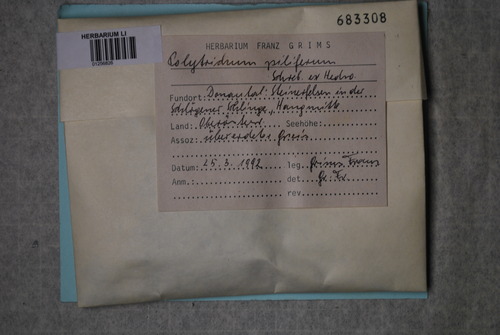 683308
HERBARIUM LI
HERBARIUM FRANZ GRIMS
Polytrichum piliferum
Schreb. ex Hedw.
Fundort: Donautal: Steinerfelsen in der
Schlögener Schlinge, Hangmitte
Land: Oberösterr. Seehöhe:
Assoz: übererdeter Gneis
Datum: 25.3.1992 leg. Grims Franz
Anm.: det. Gr. Fr.
rev.